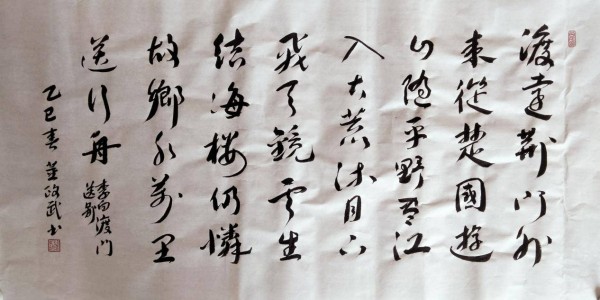 渡遠荊门外
來從楚國遊
山隨平野尽江
入大荒流月下
飛天鏡雲生
結海樓仍憐
故鄉水萬里
送行舟
李白渡门
送别
乙巳春董政武书